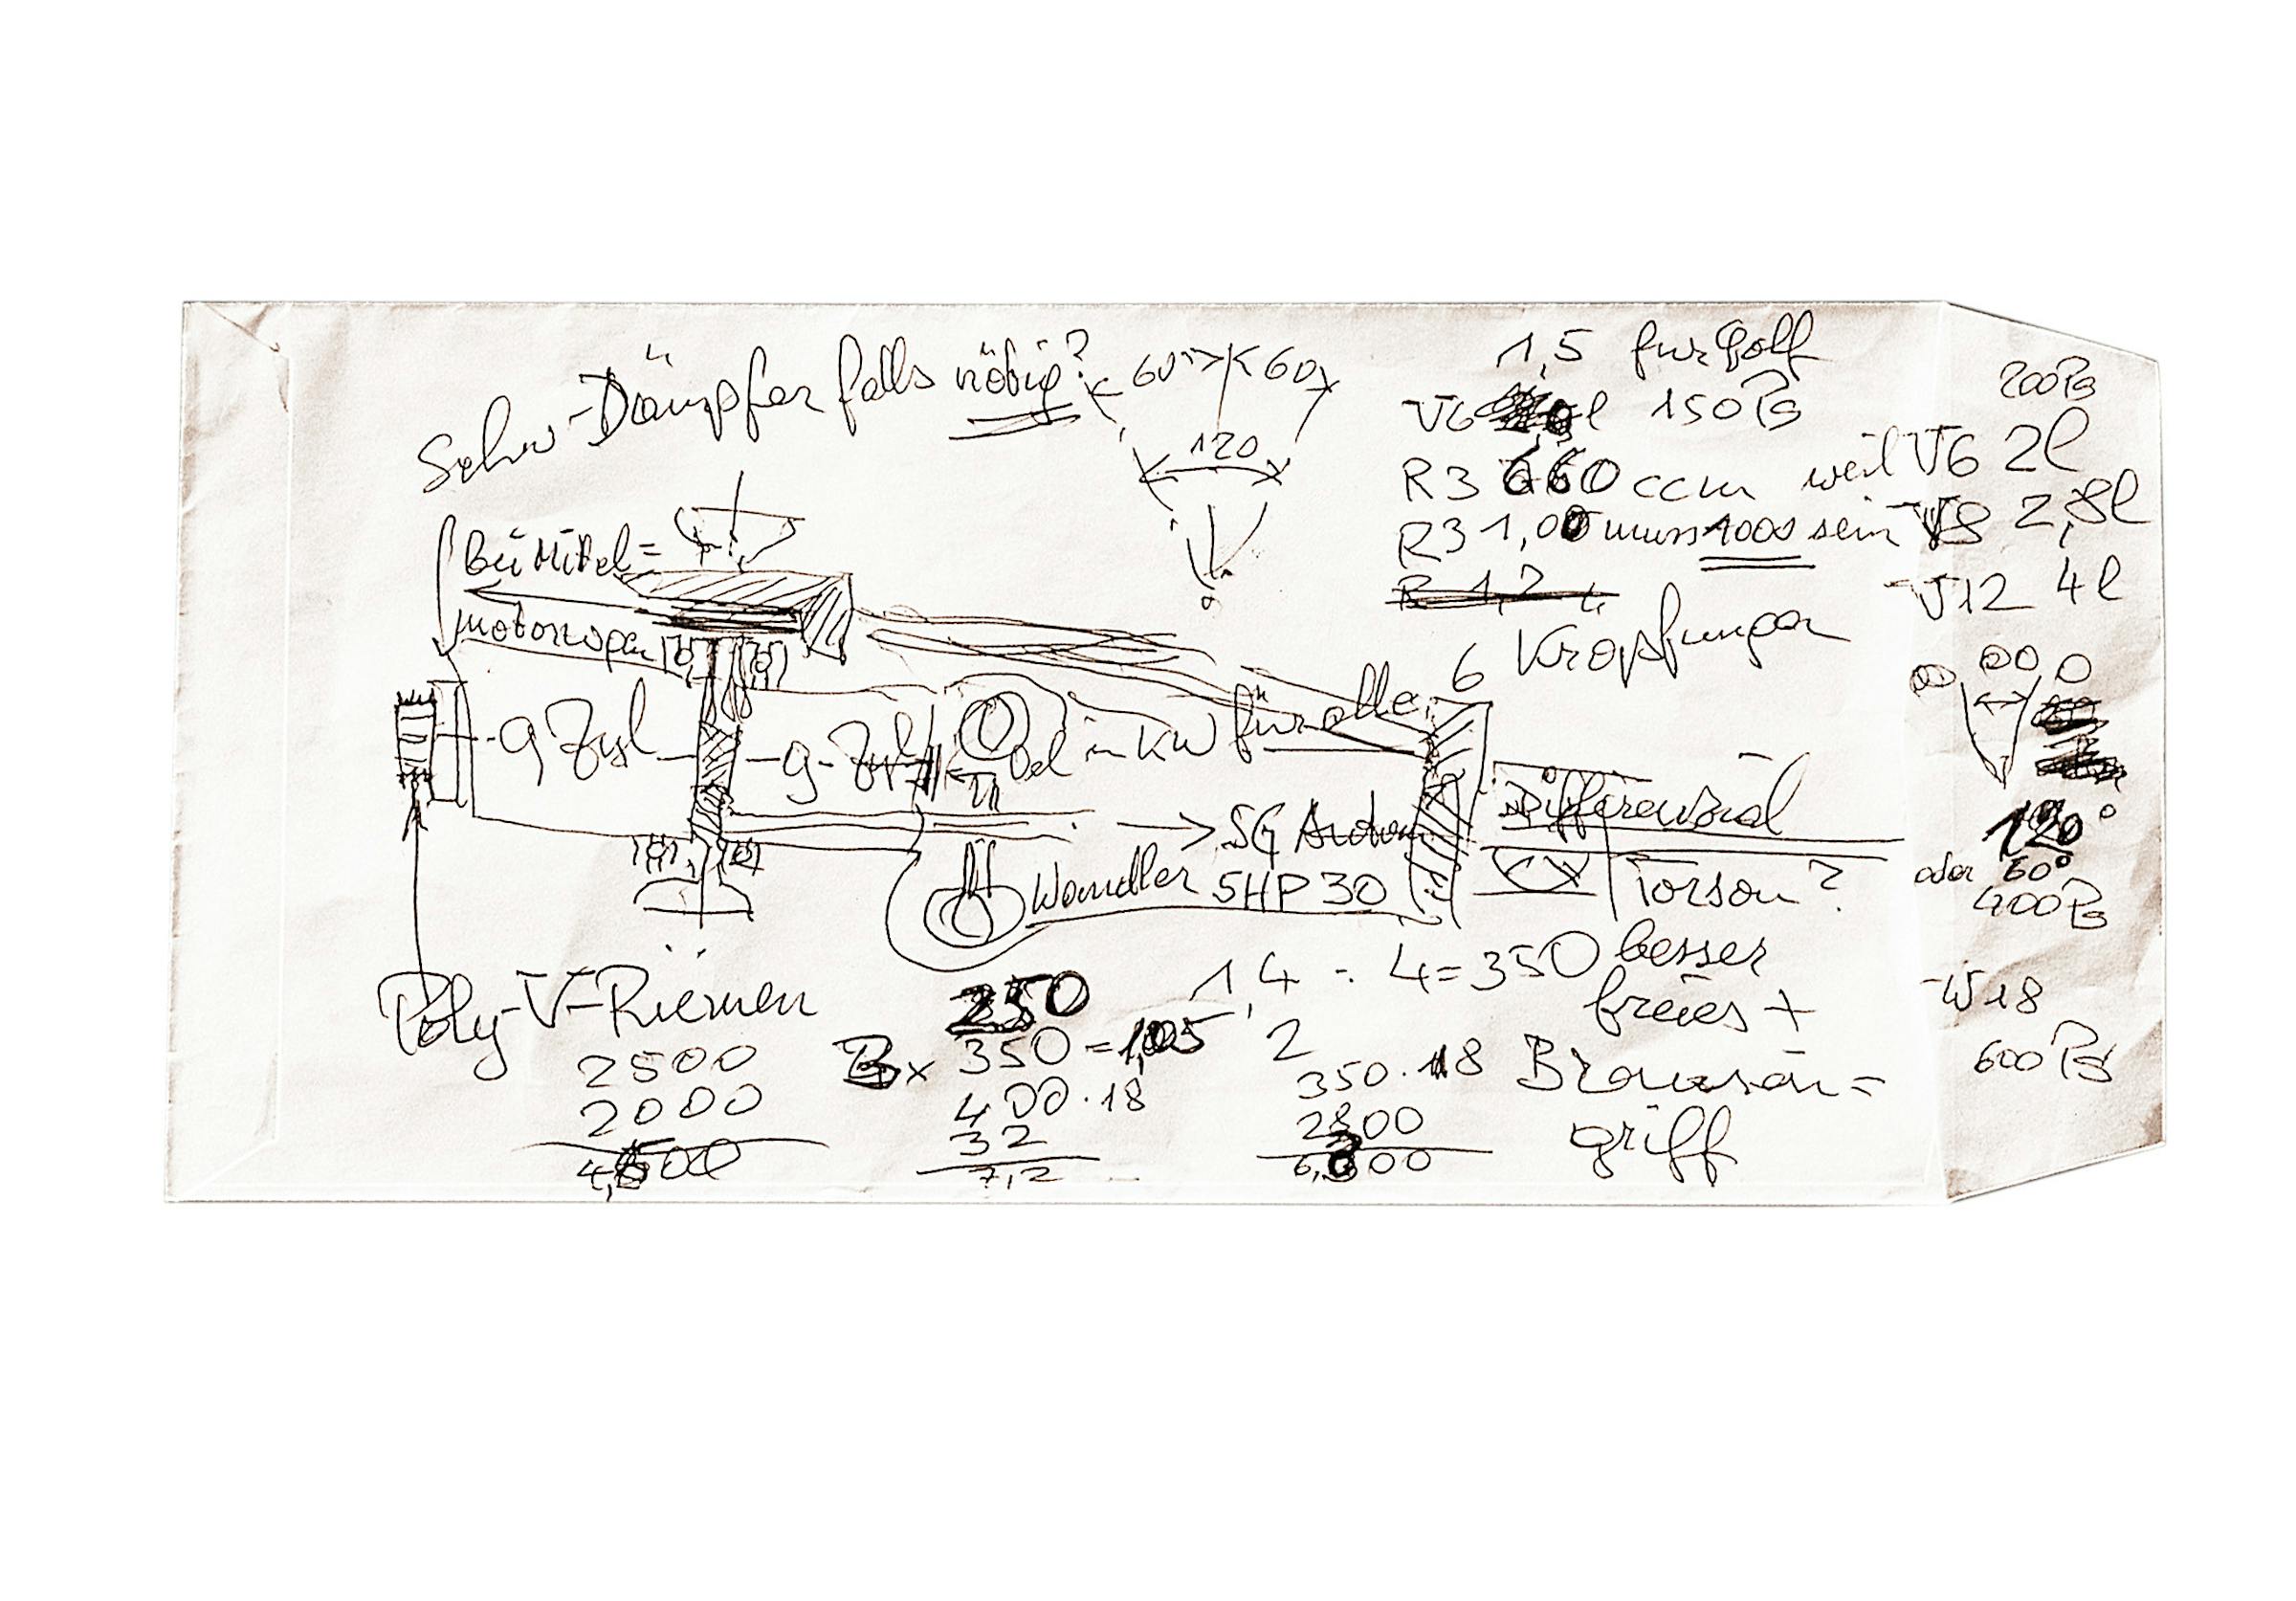 Schw-Dämpfer falls nötig?
60° 60
120
1,5 für Golf
V6 150 PS
R3 660 ccm weil V6 2l
200 PS
R3 1,00 muss 1000 sein V8 2,8l
R 1,2 L
V12 4l
6 Kröpfungen
bei Mittel=
motorwagen
9 Zyl 9-Zyl
Oel in KW für alle
→ 5G Autom
Wandler 5HP30
Differenzial
Torson?
besser
freies +
Browsain=
griff
120°
oder 60°
400 PS
W18
600 PS
Poly-V-Riemen
2500
2000
4,500
250
3x 350 = 1,05
400 · 18
32
7,2
1,4 : 4 = 350
2
350 · 18
2800
6,300